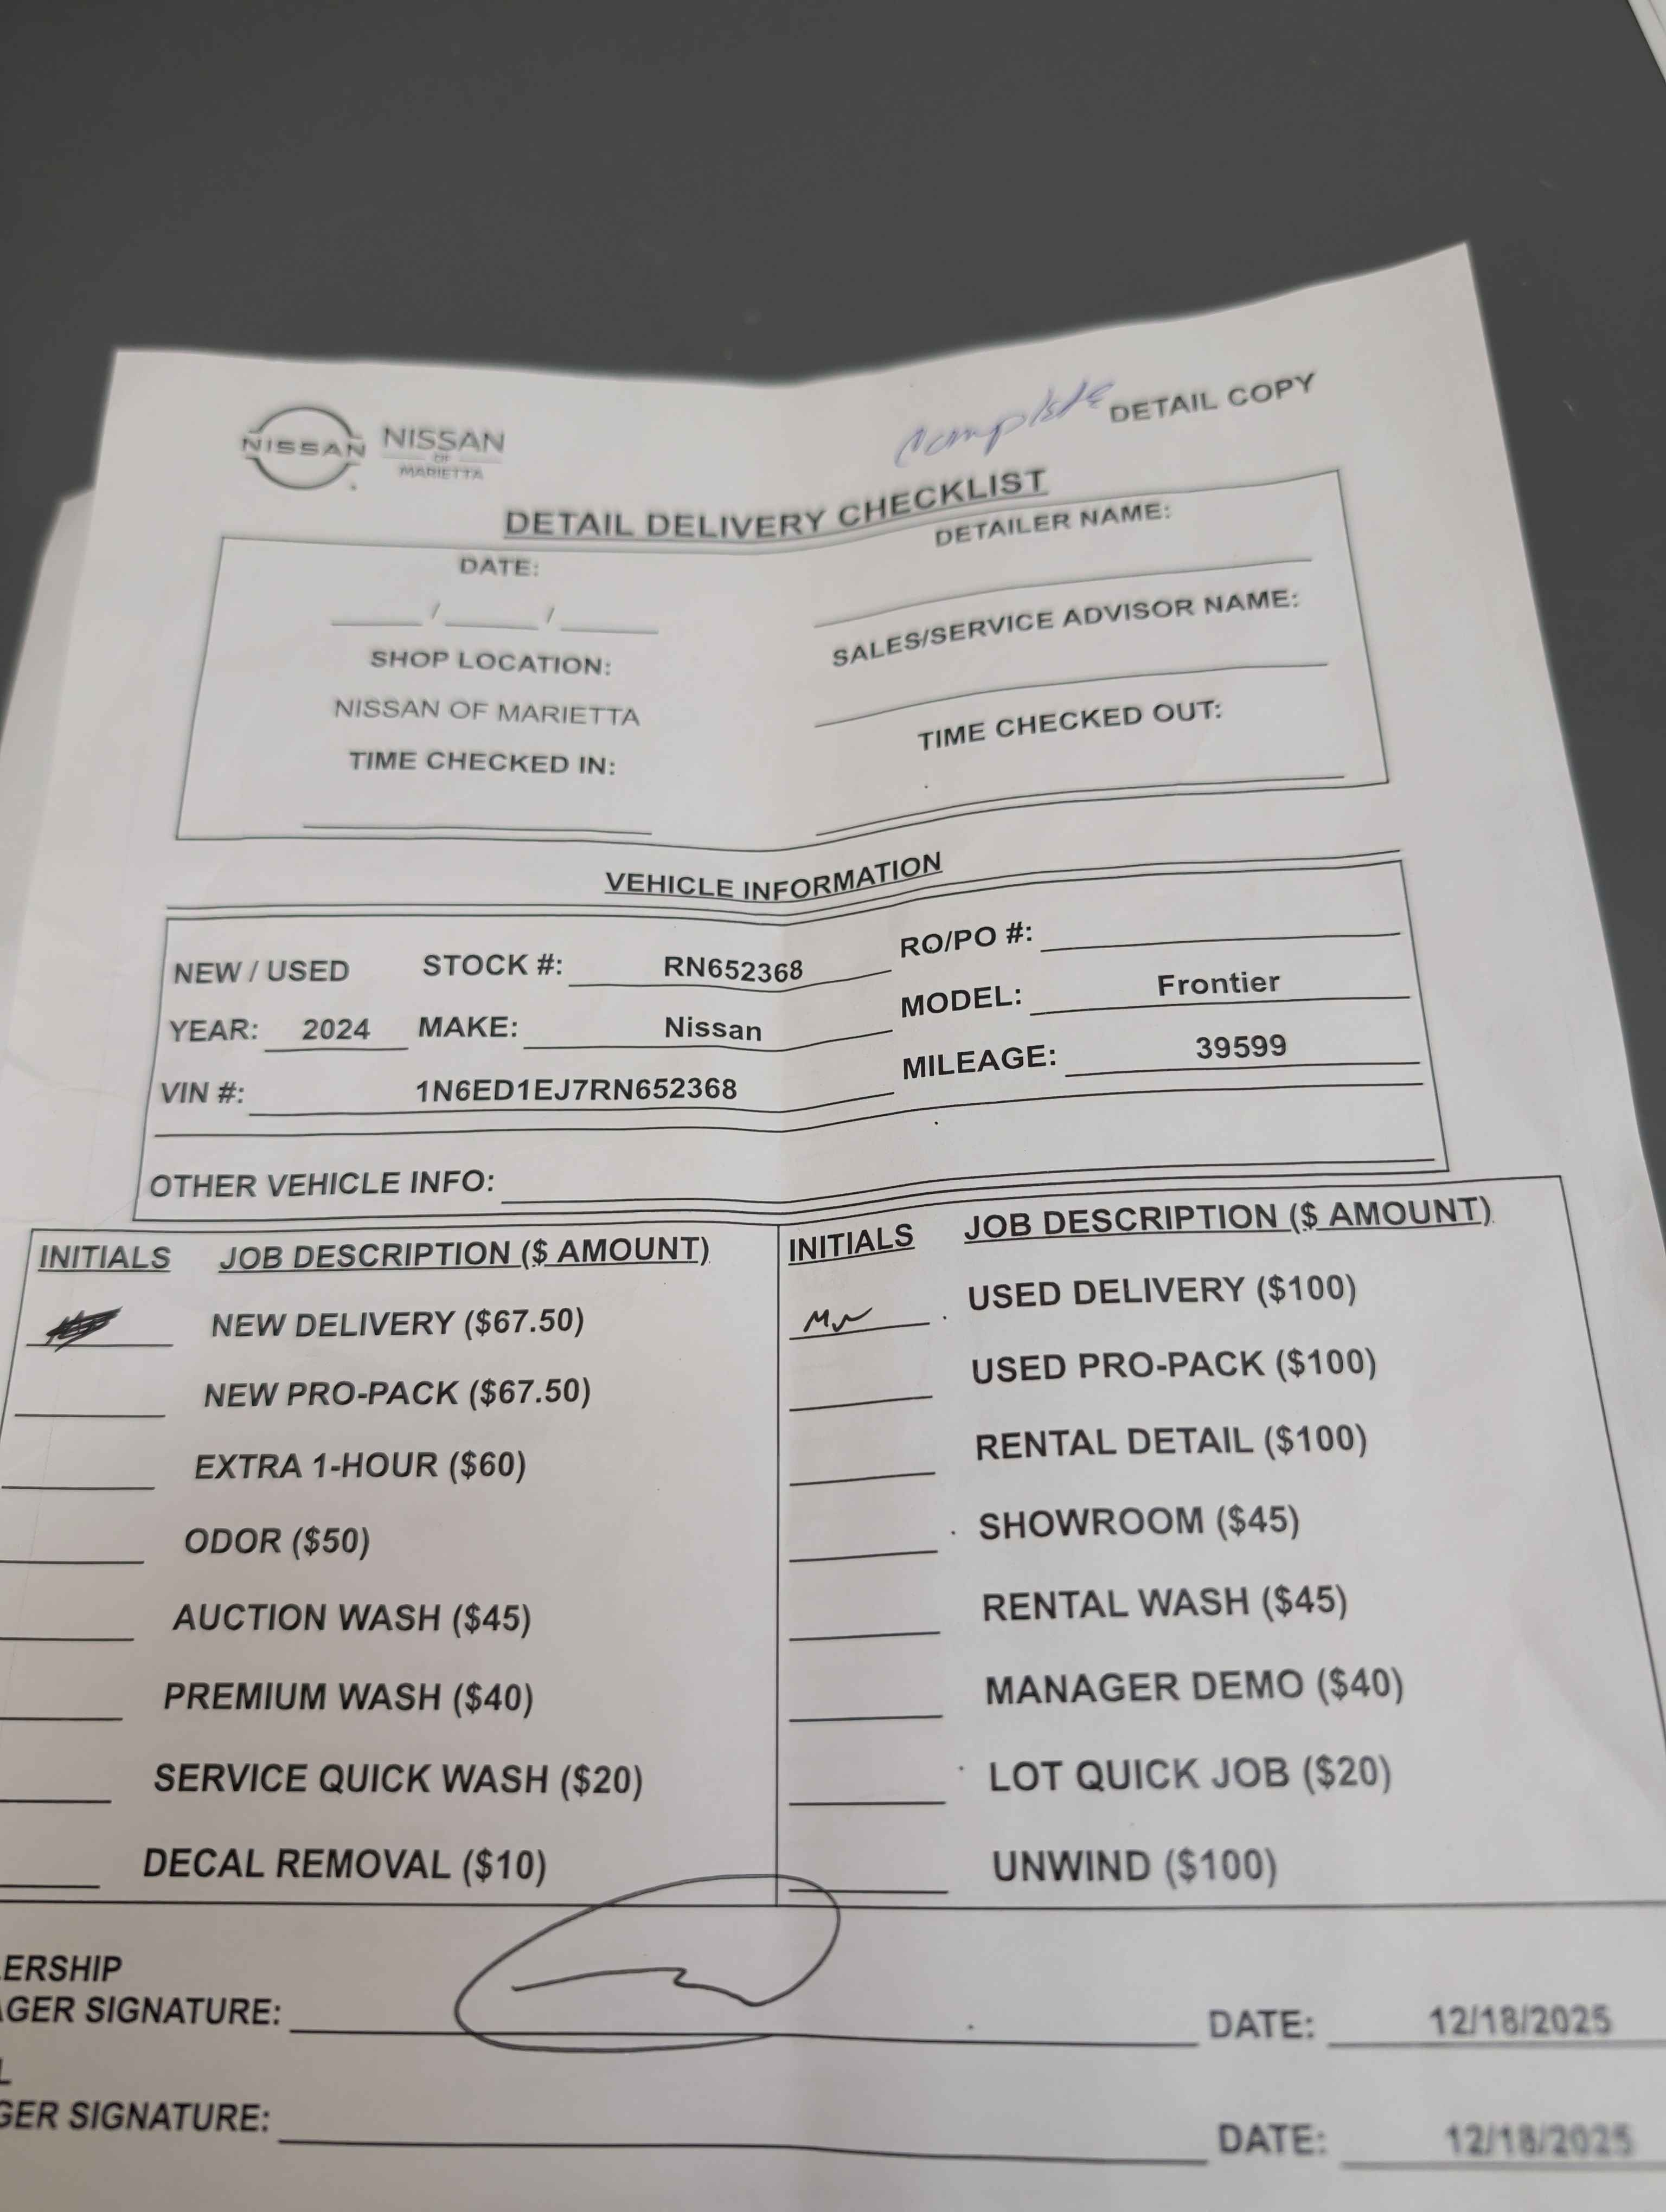 complete DETAIL COPY
NISSAN
NISSAN
OF
MARIETTA
DETAIL DELIVERY CHECKLIST
DATE:
/ /
DETAILER NAME:
SHOP LOCATION:
NISSAN OF MARIETTA
SALES/SERVICE ADVISOR NAME:
TIME CHECKED IN:
TIME CHECKED OUT:
VEHICLE INFORMATION
NEW / USED STOCK #: RN652368 RO/PO #:
YEAR: 2024 MAKE: Nissan MODEL: Frontier
VIN #: 1N6ED1EJ7RN652368 MILEAGE: 39599
OTHER VEHICLE INFO:
INITIALS JOB DESCRIPTION ($ AMOUNT)
NEW DELIVERY ($67.50)
NEW PRO-PACK ($67.50)
EXTRA 1-HOUR ($60)
ODOR ($50)
AUCTION WASH ($45)
PREMIUM WASH ($40)
SERVICE QUICK WASH ($20)
DECAL REMOVAL ($10)
INITIALS JOB DESCRIPTION ($ AMOUNT)
USED DELIVERY ($100)
USED PRO-PACK ($100)
RENTAL DETAIL ($100)
SHOWROOM ($45)
RENTAL WASH ($45)
MANAGER DEMO ($40)
LOT QUICK JOB ($20)
UNWIND ($100)
ERSHIP
GER SIGNATURE: DATE: 12/18/2025
L
GER SIGNATURE: DATE: 12/18/2025